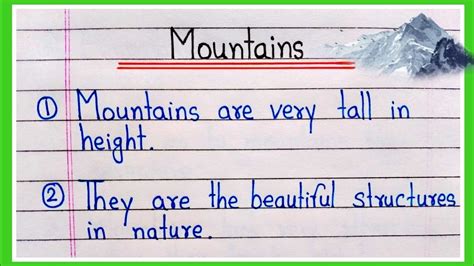 Mountains
① Mountains are very tall in
height.
② They are the beautiful structures
in nature.